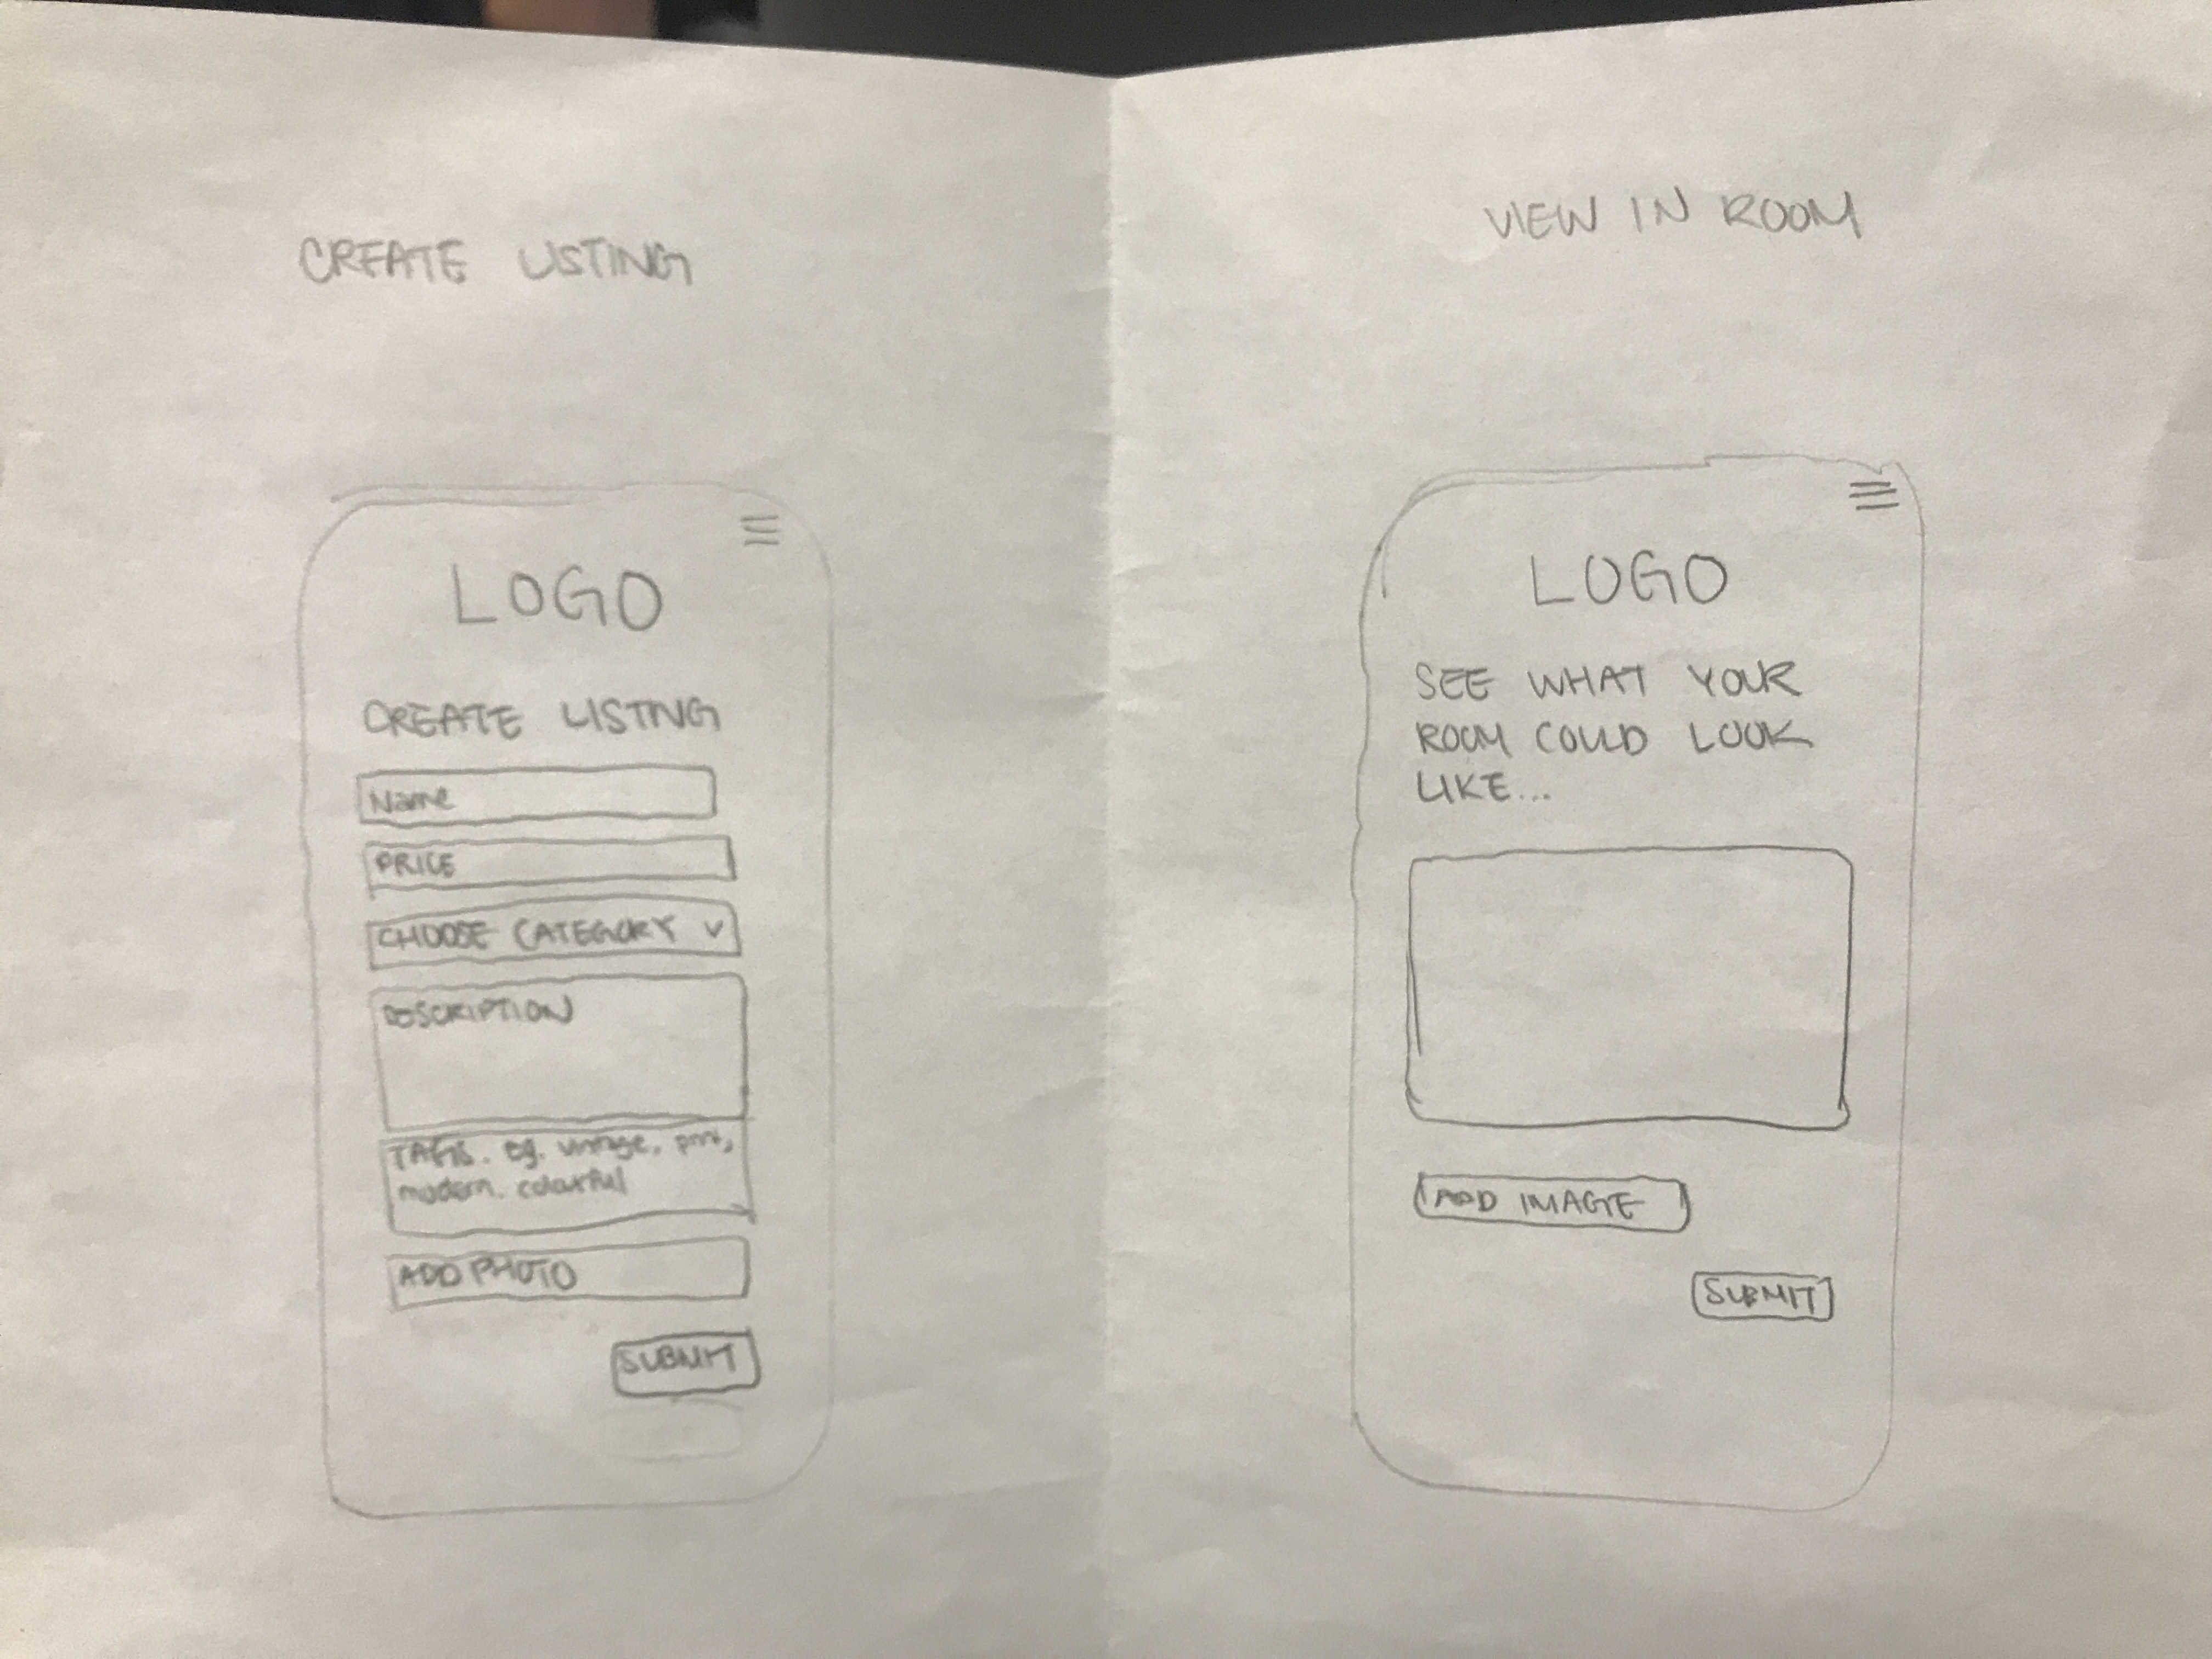 CREATE LISTING
LOGO
CREATE LISTNG
Name
PRICE
CHOOSE CATEGORY
DESCRIPTION
TAGS. eg. vintage, print,
modern. colourful
ADD PHOTO
SUBMIT
VIEW IN ROOM
LOGO
SEE WHAT YOUR
ROOM COULD LOOK
LIKE...
ADD IMAGE
SUBMIT